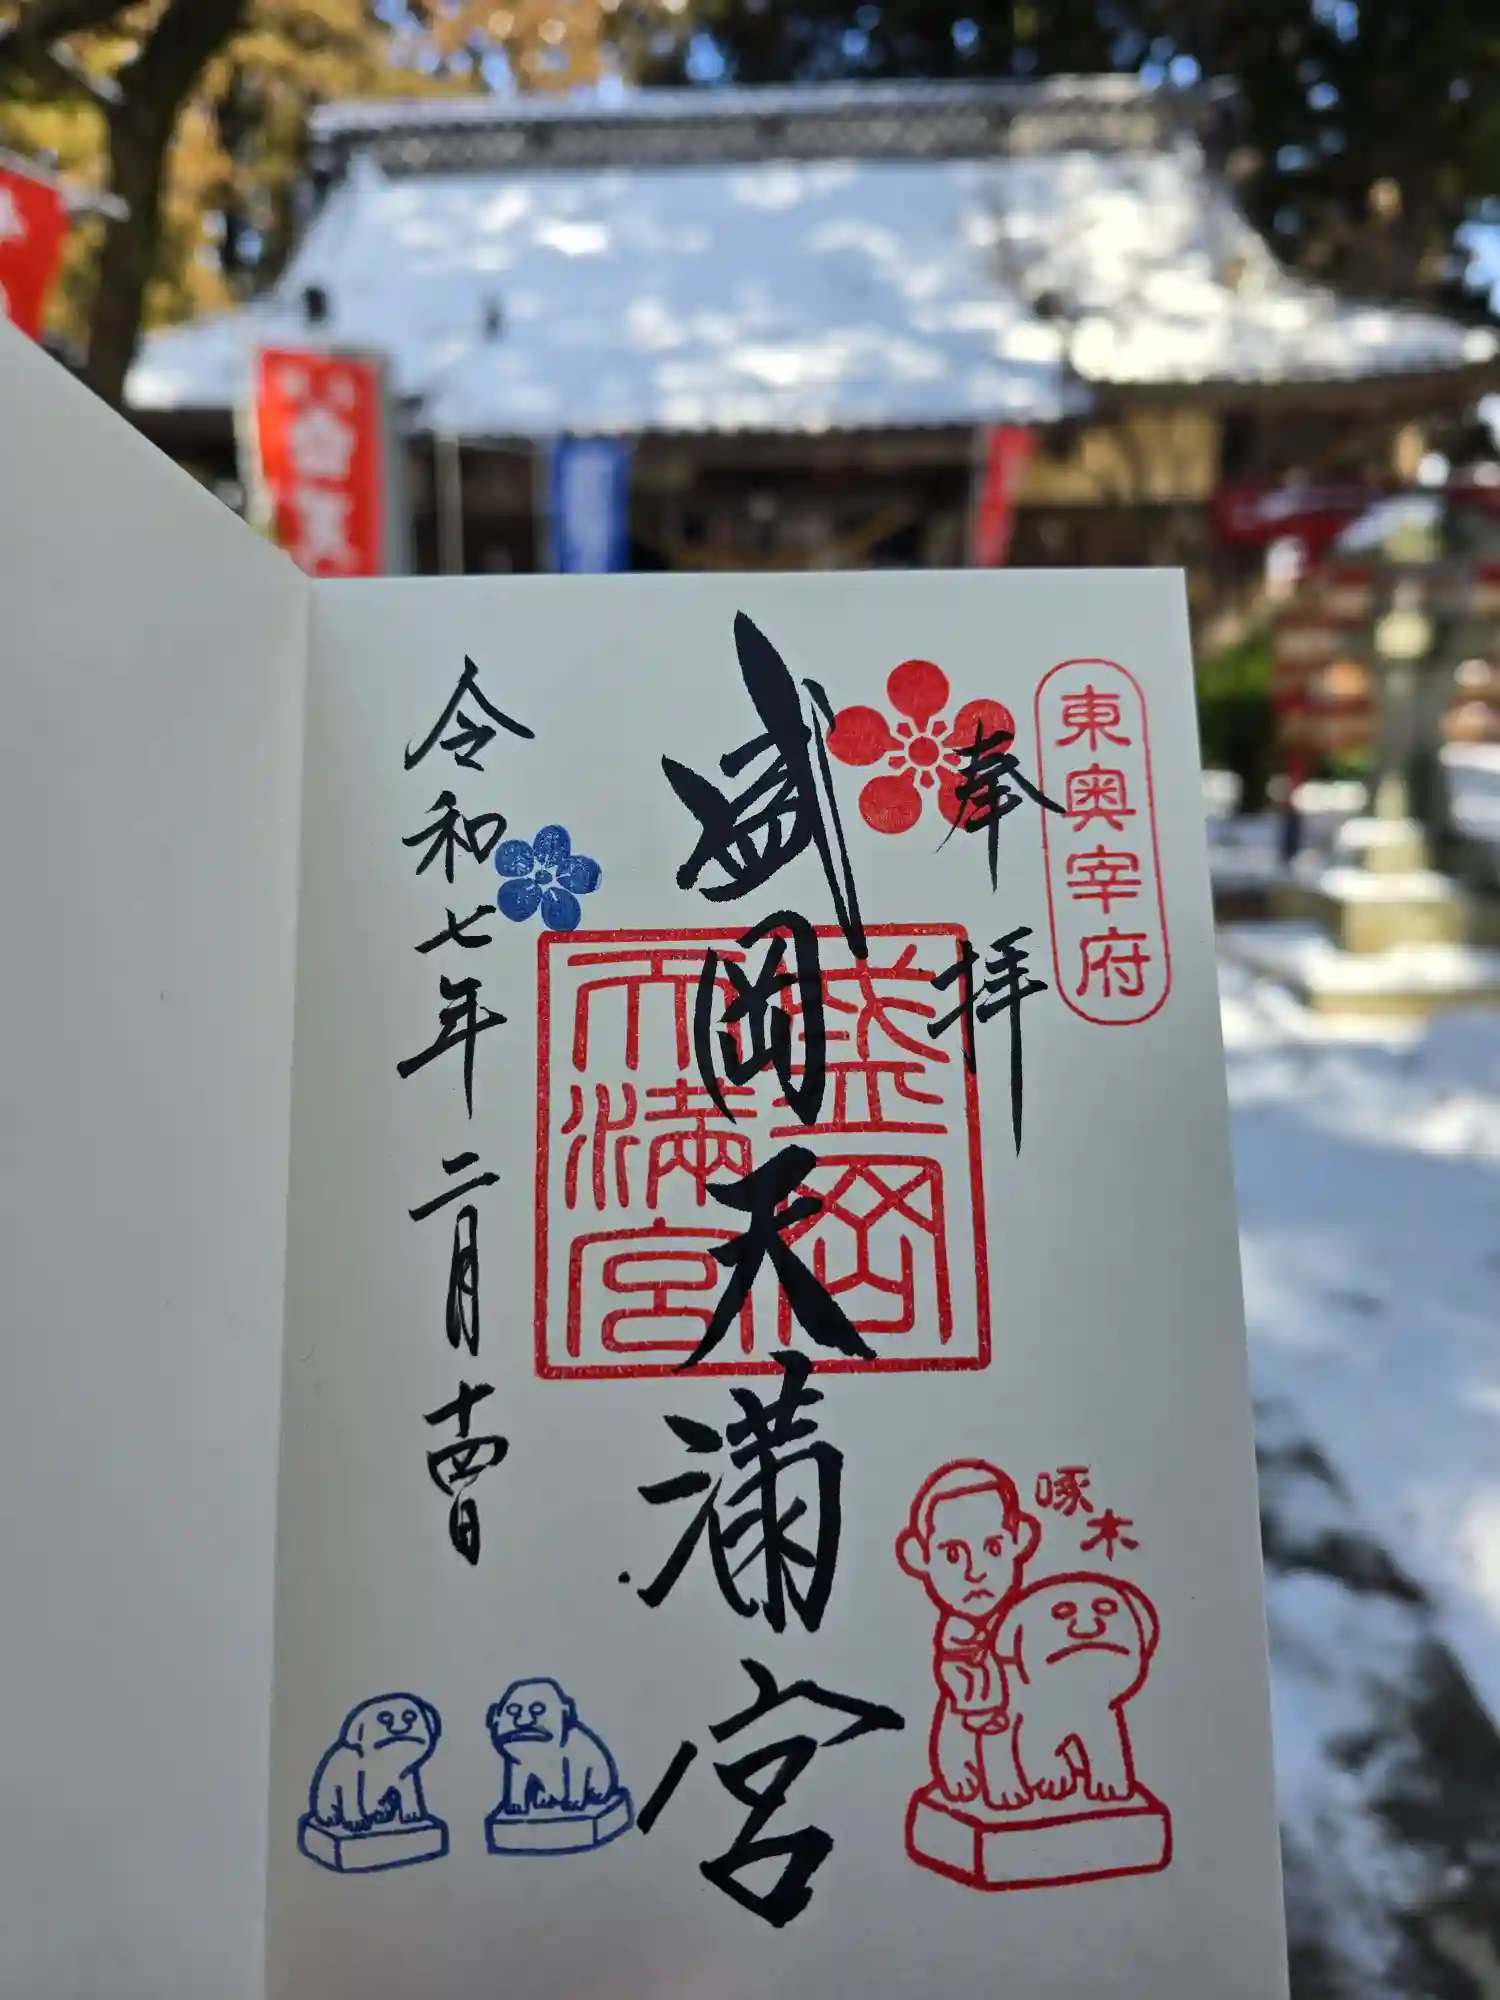 東奥宰府
奉拝
盛岡天満宮
盛岡
天満宮
令和七年二月十四日
啄木
合